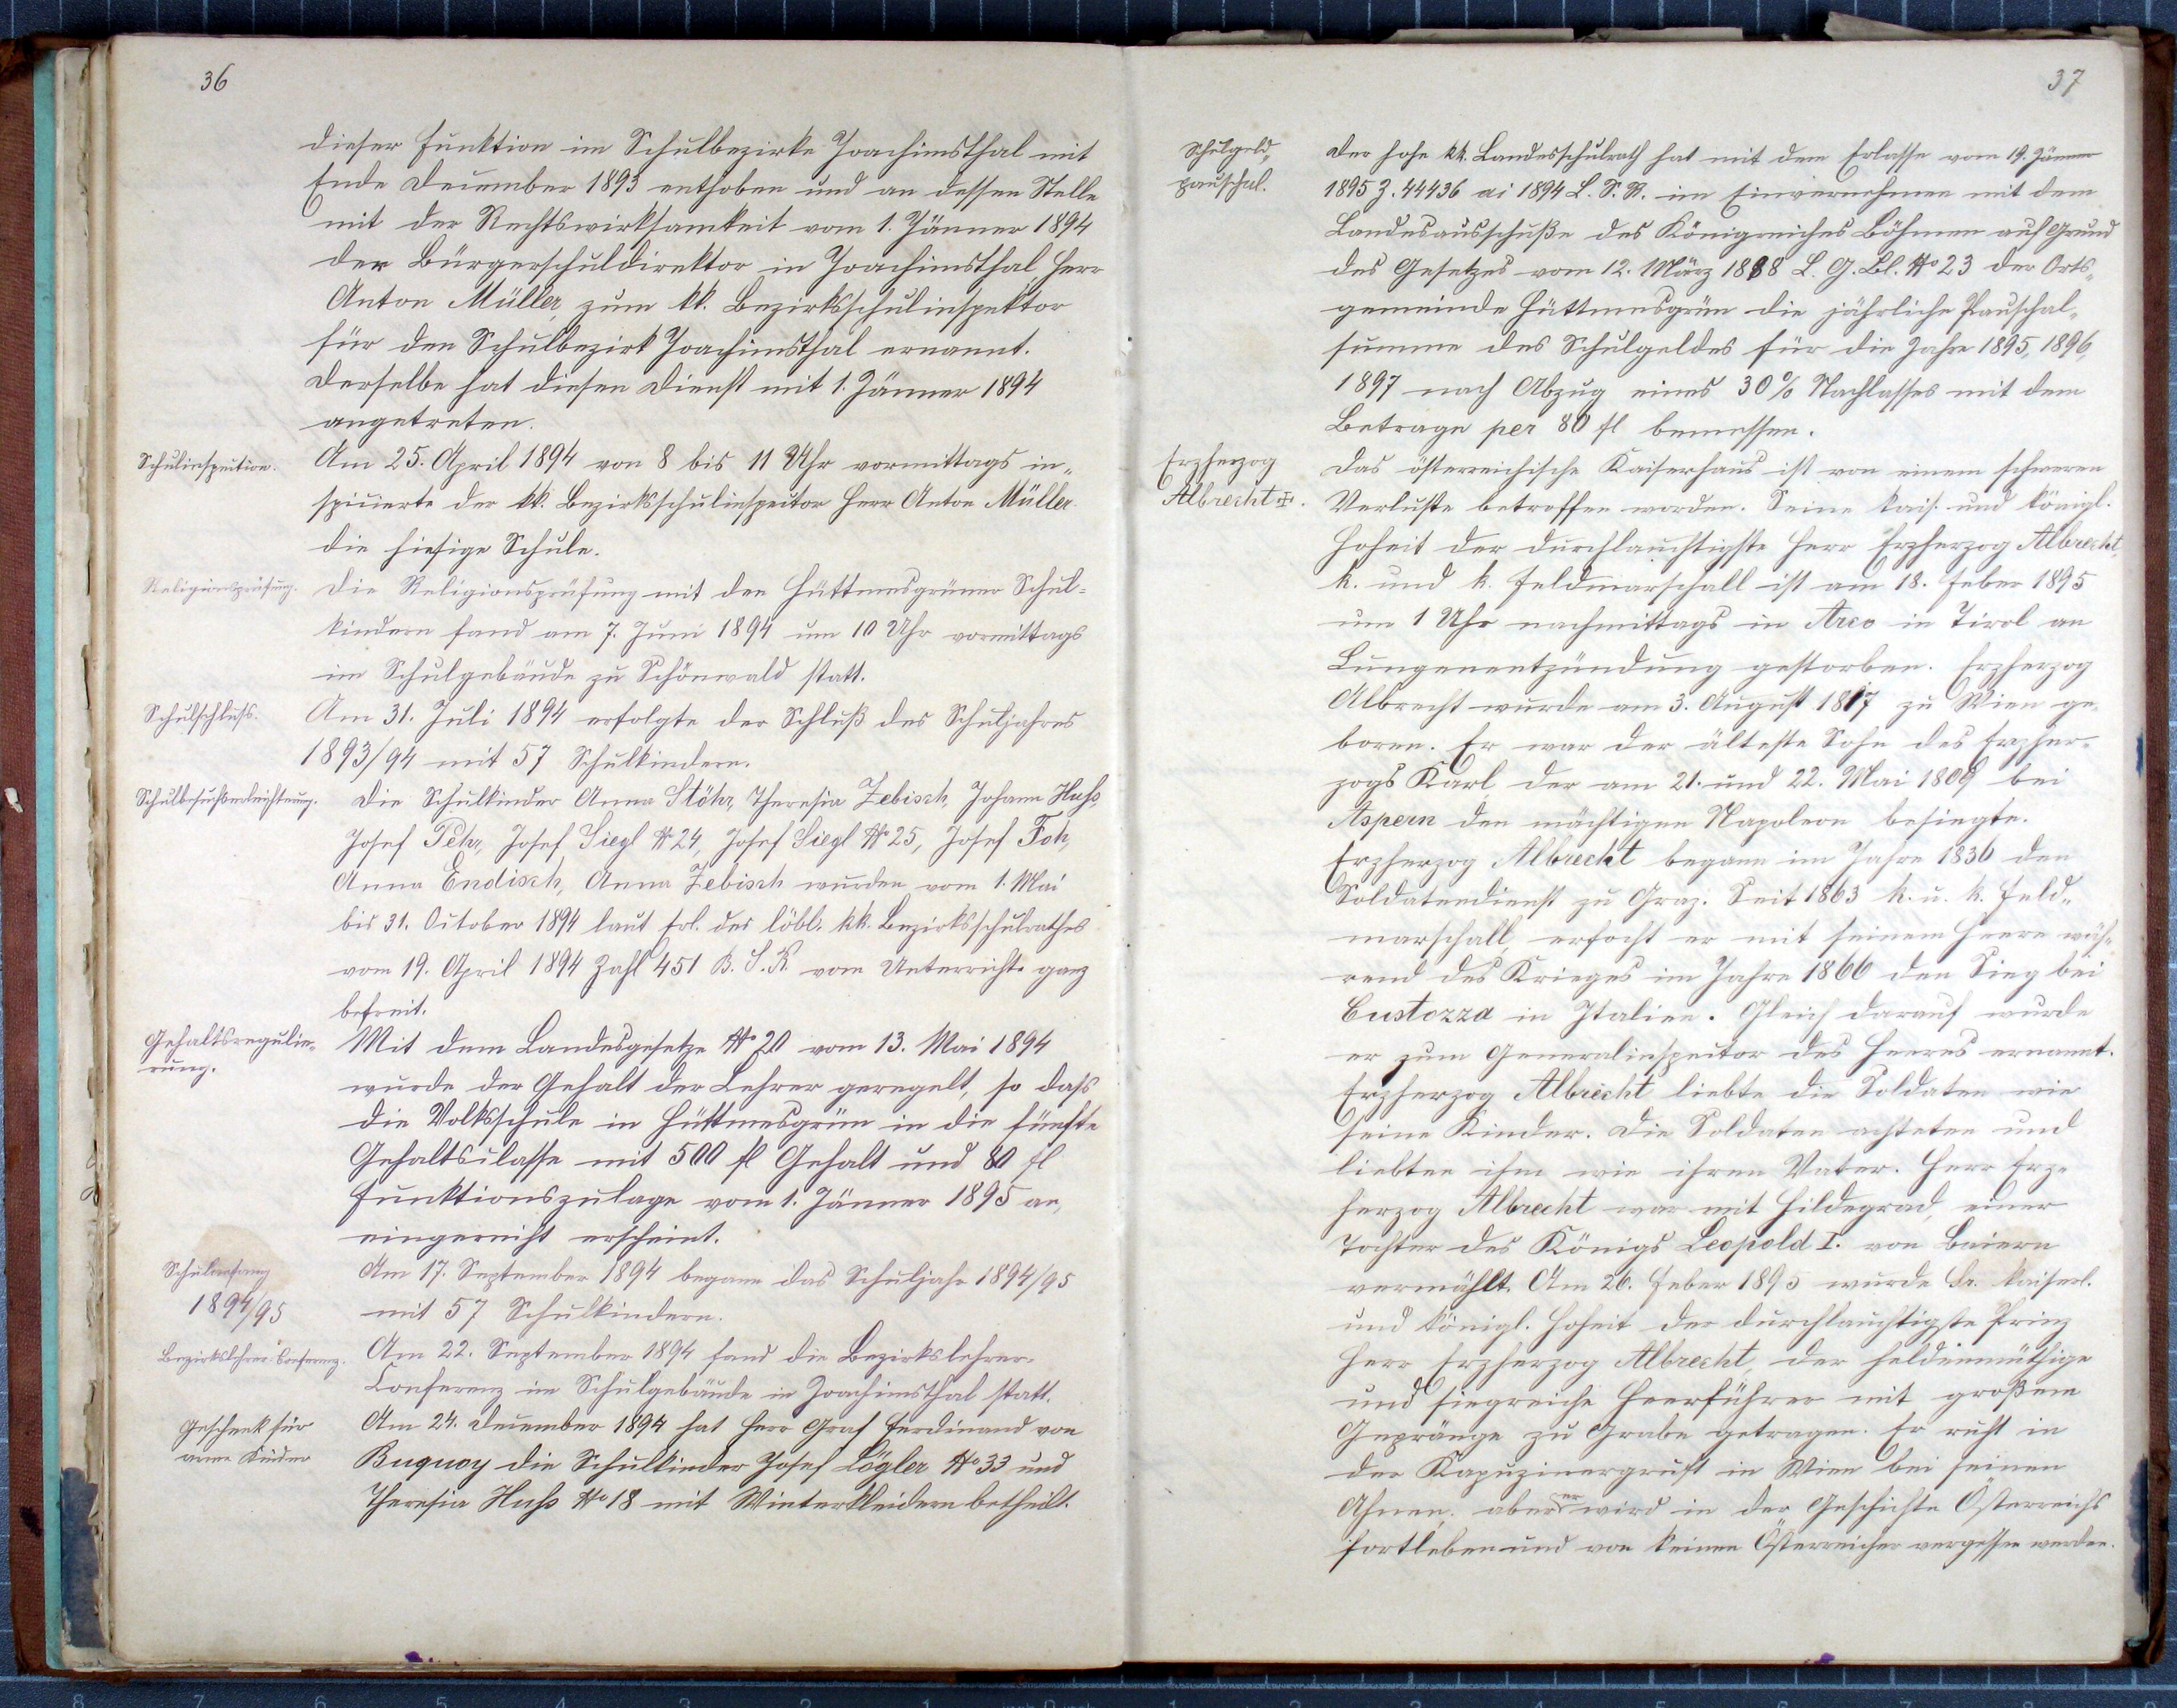 36
dieser Funktion im Schulbezirke Joachimsthal mit
Ende December 1893 enthoben und an dessen Stelle
mit der Rechtswirksamkeit vom 1. Jänner 1894
der Bürgerschuldirektor in Joachimsthal Herr
Anton Müller, zum kk. Bezirksschulinspektor
für den Schulbezirk Joachimsthal ernannt.
Derselbe hat diesen Dienst mit 1. Jänner 1894
angetreten.
Schulinspection.
Am 25. April 1894 von 8 bis 11 Uhr vormittags in„
spicierte der kk. Bezirksschulinspector Herr Anton Müller
die hiesige Schule.
Religionsprüfung.
Die Religionsprüfung mit den Hüttmesgrüner Schul=
kindern fand am 7. Juni 1894 um 10 Uhr vormittags
im Schulgebäude zu Schönwald statt.
Schulschluss.
Am 31. Juli 1894 erfolgte der Schluß des Schuljahres
1893/94 mit 57 Schulkindern.
Schulbesuchserleichterung.
Die Schulkinder Anna Stöhr, Theresia Zebisch, Johann Huss,
Josef Pehr, Josef Siegl No 24, Josef Siegl No 25, Josef Foh,
Anna Endisch, Anna Zebisch wurden vom 1. Mai
bis 31. October 1894 laut Erl. des löbl. kk. Bezirksschulrathes
vom 19. April 1894 Zahl 451 B. S. R. vom Unterrichte ganz
befreit.
Gehaltsregulie„
rung.
Mit dem Landesgesetze No 20 vom 13. Mai 1894
wurde der Gehalt der Lehrer geregelt, so dass
die Volksschule in Hüttmesgrün in die fünfte
Gehaltsclasse mit 500 fl Gehalt und 80 fl
Funktionszulage vom 1. Jänner 1895 an,
eingereiht erscheint.
Schulanfang
1894/95
Am 17. September 1894 begann das Schuljahr 1894/95
mit 57 Schulkindern.
Bezirkslehrer-Conferenz.
Am 22. September 1894 fand die Bezirkslehrer-
Conferenz im Schulgebäude in Joachimsthal statt.
Geschenk für
arme Kinder
Am 24. December 1894 hat Herr Graf Ferdinand von
Buquoy die Schulkinder Josef Lögler No 33 und
Theresia Huss No 18 mit Winterkleidern betheilt.
37
Schulgeld„
pauschal.
Der hohe kk. Landesschulrath hat mit dem Erlasse vom 19. Jänner
1895 Z. 44436 ai 1894 L. S. R. im Einvernehmen mit dem
Landesausschuße des Königreiches Böhmen auf Grund
des Gesetzes vom 12. März 1888 L. G. Bl. No 23 der Orts„
gemeinde Hüttmesgrün die jährliche Pauschal„
summe des Schulgeldes für die Jahre 1895, 1896,
1897 nach Abzug eines 30% Nachlasses mit dem
Betrage per 80 fl bemessen.
Erzherzog
Albrecht ✠.
Das österreichische Kaiserhaus ist von einem schweren
Verluste betroffen worden. Seine kais. und königl.
Hoheit der durchlauchtigste Herr Erzherzog Albrecht,
k. und k. Feldmarschall ist am 18. Feber 1895
um 1 Uhr nachmittags in Arco in Tirol an
Lungenentzündung gestorben. Erzherzog
Albrecht wurde am 3. August 1817 zu Wien ge„
boren. Er war der älteste Sohn des Erzher„
zogs Karl der am 21. und 22. Mai 1809 bei
Aspern den mächtigen Napoleon besiegte.
Erzherzog Albrecht begann im Jahre 1830 den
Soldatendienst zu Graz. Seit 1863 k. u. k. Feld„
marschall, erfocht er mit seinem Heere wäh„
rend des Krieges im Jahre 1866 den Sieg bei
Custozza in Italien. Gleich darauf wurde
er zum Generalinspector des Heeres ernannt.
Erzherzog Albrecht liebte die Soldaten wie
seine Kinder. Die Soldaten achteten und
liebten ihn wie ihren Vater. Herr Erz„
herzog Albrecht war mit Hildegrad, einer
Tochter des Königs Leopold I. von Baiern
vermählt. Am 26. Feber 1895 wurde Sr. kaiserl.
und königl. Hoheit der durchlauchtigste Prinz
Herr Erzherzog Albrecht, der heldenmüthige
und siegreiche Heerführer mit großem
Gepränge zu Grabe getragen. Er ruht in
der Kapuzinergruft in Wien bei seinen
Ahnen, aber er wird in der Geschichte Österreichs
fortleben und von keinem Österreicher vergessen werden.